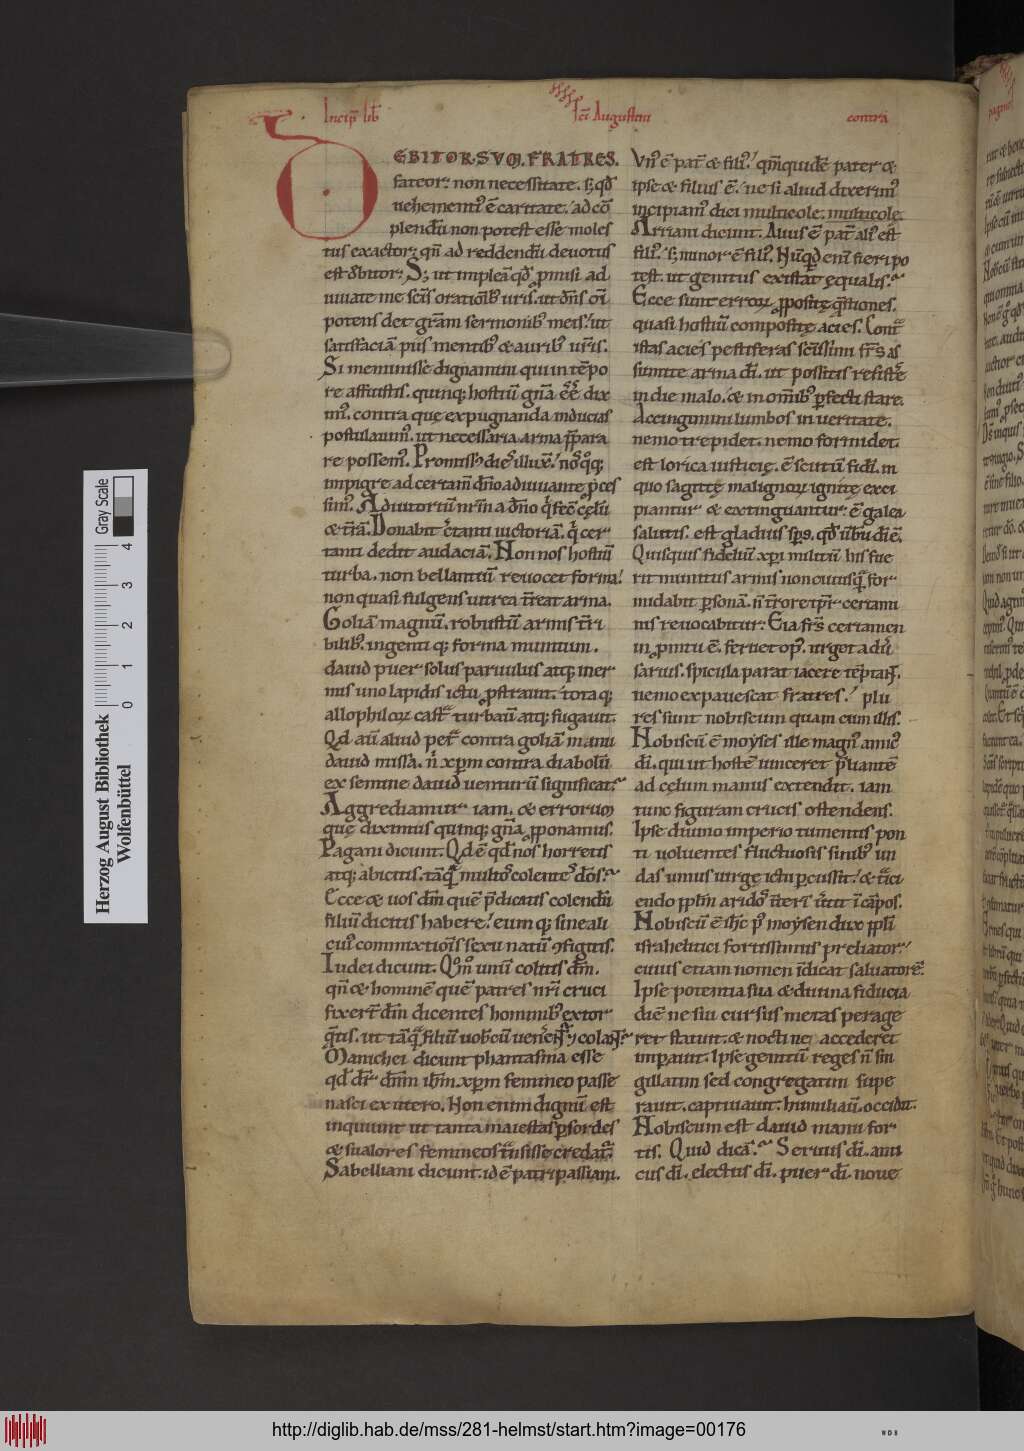 Incip̄ lib̄ sc̄i Augustini contra
DEBITOR. SVM. FRATRES.
fateor. non necessitate. s; qd̄
uehementi᷒ ē caritate. ad cō
plendū non potest esse moles
tus exactor. qn̄ ad reddendū deuotus
est debitor. S; ut impleā qd̄ promisi. ad
iuuate me sc̄is orationib; uris. ut dn̄s oī
potens det gr̄am sermonib; meis. ut
satisfaciā piis mentib; & aurib; uris.
Si meminisse dignamini qui in tēpo
re affuistis. quinq; hostiū gn̄a eē dix
im᷒. contra quę expugnanda inducias
postulauim᷒. ut necessaria arma p̄para
re possem᷒. Promissus dies illuxē. nos q̊q;
impigre ad certam̄ dn̄o adiuuante p̄ces
sim᷒. Adiutoriū nr̄m a dn̄o q̇ fec̄ cęlū
& tr̄ā. Donabit c̄tanti uictoriā. q̇ cer
tanti dedit audaciā. Non nos hostiū
turba. non bellantiū reuocet forma.
non quasi fulgens uitrea tr̄eat arma.
Goliā magnū. robustū armis tr̄i
bilib᷒. ingenti q; forma munitum.
dauid puer solus paruulus atq; iner
mis uno lapidis ictu prostrauit. tota q;
allophiloꝝ castra turbauit atq; fugauit.
Qd̄ aū aliud pet̄ contra goliā manu
dauid missa. n̄ xp̄m contra diabolū
ex semine dauid uenturū significat.
Aggrediamur iam. & errorum
quę diximus quinq; gn̄a proponamus.
Pagani dicunt. Qd̄ ē qd̄ nos horretis
atq; abicitis. tāq̄ multos colentes d̄os.
Ecce & uos dm̄ quē p̄dicatis colendū
filiū dicitis habere. eum q; sine ali
cui᷒ commixtiois sexu natū ꝯfigitis.
Iudei dicunt. Qm̊ unū colitis dm̄.
qn̄ & hominē quē patres nr̄i cruci
fixer̄ dm̄ dicentes hominib᷒ extor
q̄tis. ut tāq̄ filiū uobcū uenerēt᷑ ꝯ colant᷑.
Manichei dicunt phantasma esse
qd̄ dr̄ dnm̄ ihm̄ xp̄m femineo passe
nasci ex utero. Non enim dignū est
inquiunt ut tanta maiestas p sordes
& sualores femineos trāsisse credat᷑.
Sabelliani dicunt. id ē patripassiani.
Vn᷒ ē pat̄ & fili᷒. qm̄ quidē pater &
ipse & filius ē. ne si aliud dixerim᷒
incipiam᷒ dici multicole. multicole.
Arriani dicunt. Alius ē pat̄ ali᷒ est
fili᷒. s; minor ē fili᷒. Nūqd̄ enī fieri po
test. ut genitus existat ęqualis.
Ecce sunt erroꝝ propositę q̄stiones.
quasi hostiū compositę acies. Cont̄
istas acies pestiferas sc̄issimi frs̄ as
sumite arma di̅. ut possitis resistēr
in die malo. & in omib᷒ perfecti stare.
Accingimini lumbos in ueritate.
nemo trepidet. nemo formidet.
est lorica iusticię. ē scutū fidei. in
quo sagittę malignoꝝ ignitę exci
piantur & extinguantur. ē galea
salutis. est gladius sp̄s. qd̄ ūbū di̅ ē.
Quisquis fideliū xp̄i militū his fue
rit munitus armis non cuiusq̄ for
midabit personā. n̄ tr̄ore ip̄i certami
nis reuocabitur. Eia frs̄ certamen
in promtu ē. feruet op᷒. urget aduer
sarius. spicula parat iacere tēptat᷑.
nemo expauescat fratres. plu
res sunt nobiscum quam cum illis.
Nobiscū ē moyses ille magn᷒ amic᷒
di̅. qui ut hostē uinceret p̄liantē
ad cęlum manus extendit. iam
tunc figuram crucis ostendens.
Ipse diuino imperio tumentis pon
ti uoluentes fluctuosis sinib᷒ un
das unius uirgę ictu percussit. & tāci
endo pplm̄ arido᷒ iter ut in cāpos.
Nobiscū ē ihc̄ p᷒ moysen dux ppli̅
israhelitici fortissimus preliator.
cuius etiam nomen īdicat saluatorē.
Ipse potentia sua & diuina fiducia
diē ne sui cursus metas perage
ret statuit. & nocti ne accederet
imperauit. Ipse gentiū reges n̄ sin
gillatim sed congregatim supe
rauit. captiuauit. humiliauit. occidit.
Nobiscum est dauid manu for
tis. Quid dicā. Seruus di̅. ami
cus di̅. electus di̅. puer di̅. noue
Herzog August Bibliothek
Wolfenbüttel
Gray Scale
0 1 2 3 4
http://diglib.hab.de/mss/281-helmst/start.htm?image=00176
WDB